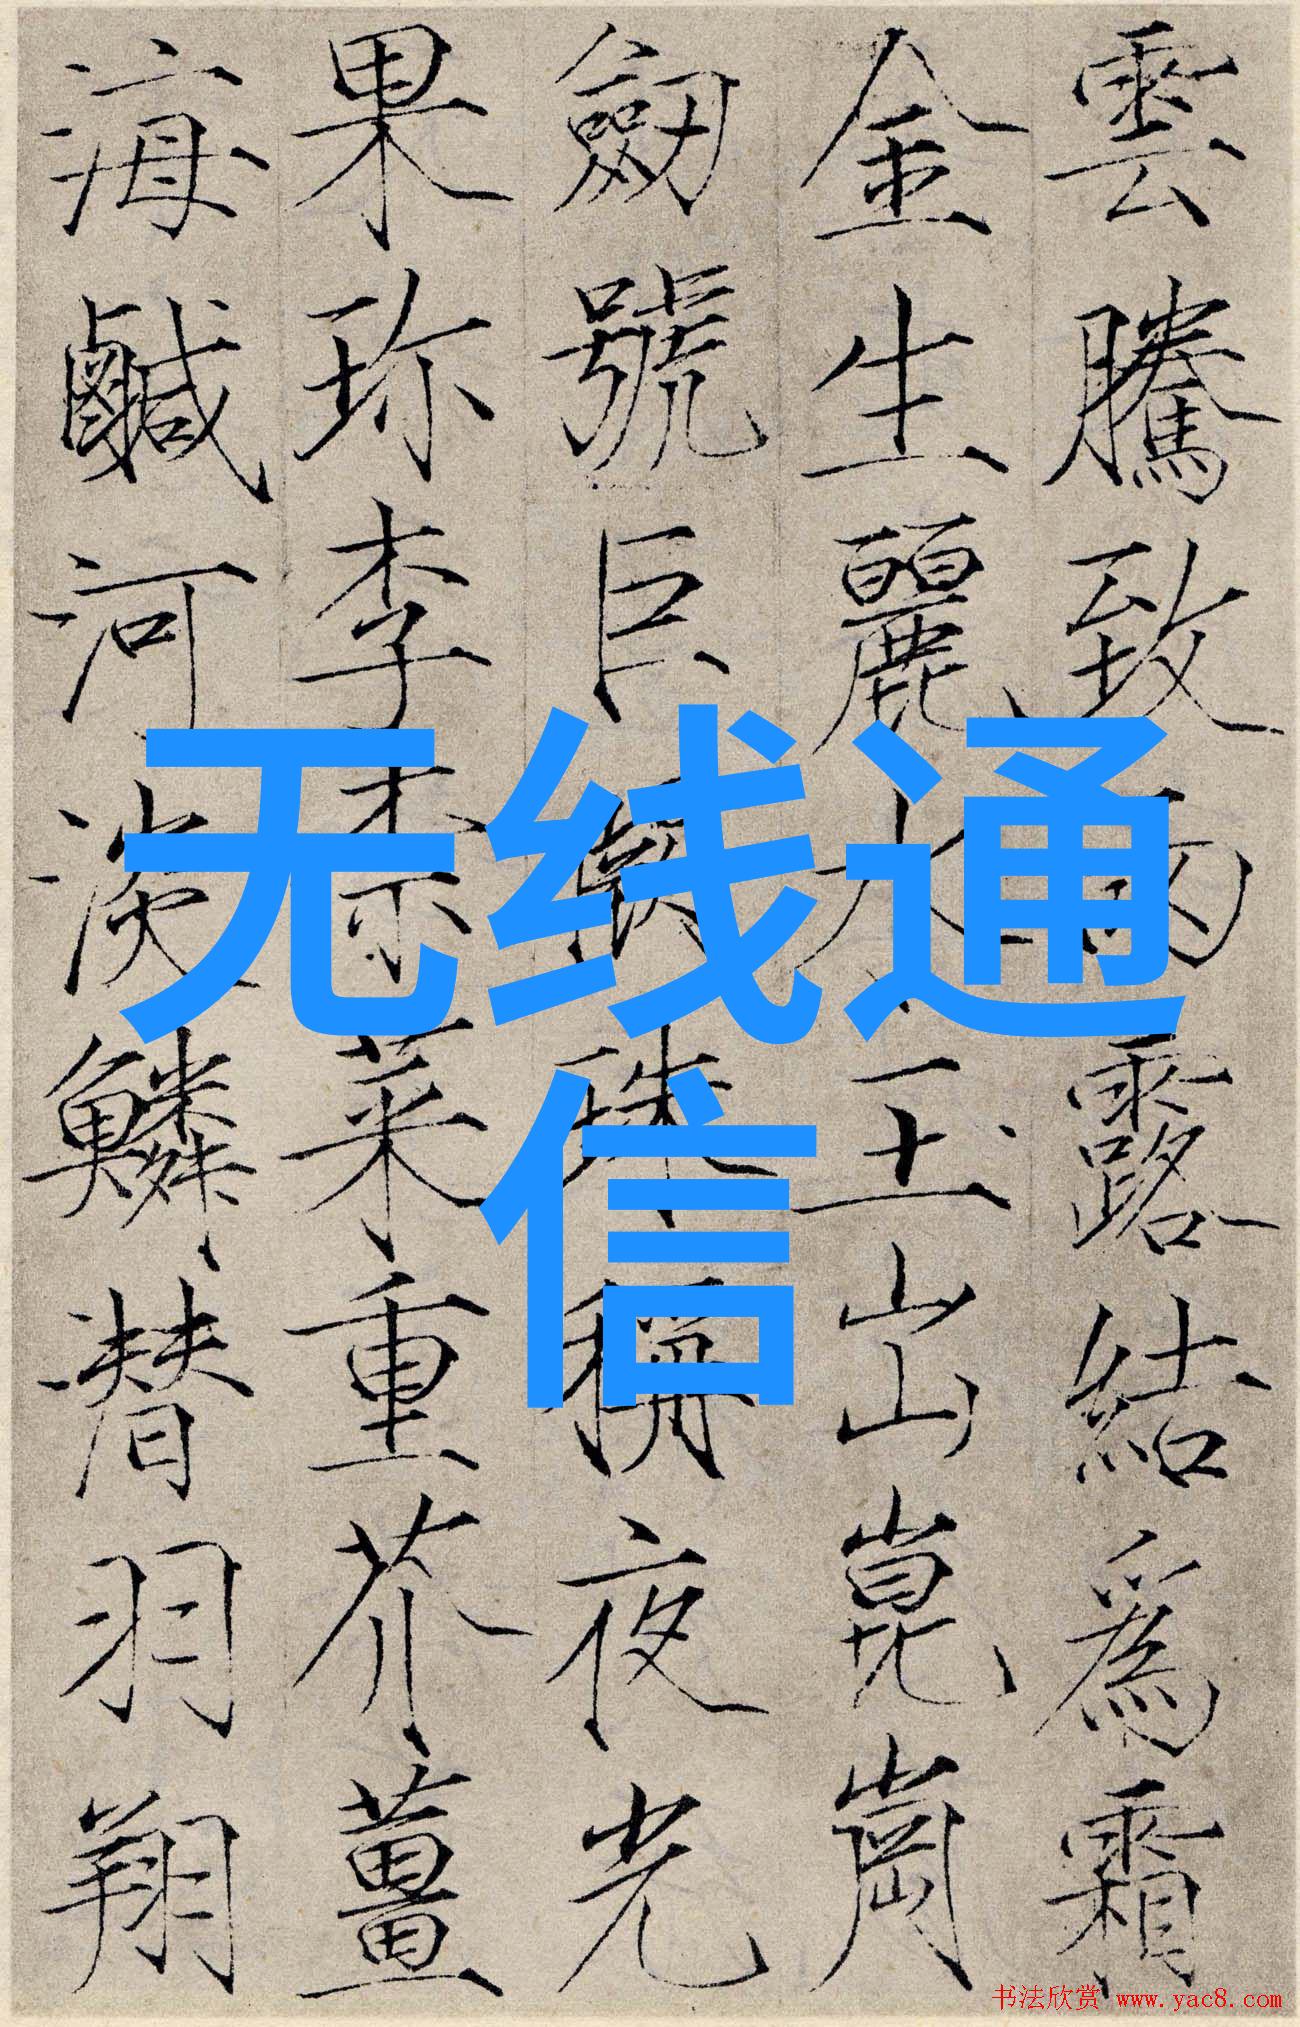 雲騰致雨露結爲霜
金生麗水玉岀崑崗
劒號巨闕珠稱夜光
果珎李柰菜重芥薑
海鹹河淡鱗潜羽翔
无线通
信
书法欣赏 www.yac8.com